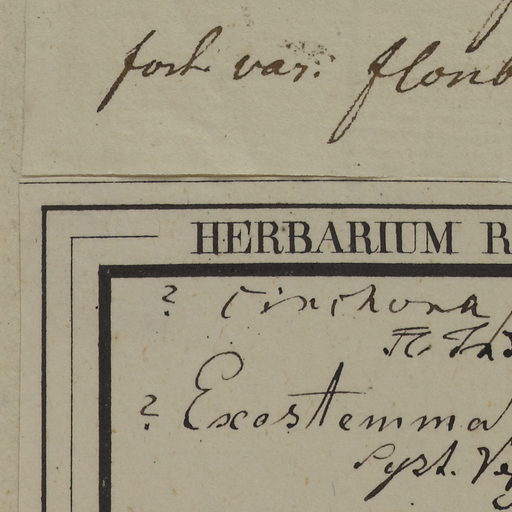 forh var. florib
HERBARIUM R
? Cinchona
Fl. Ind
? Exostemma
Syst. Ve